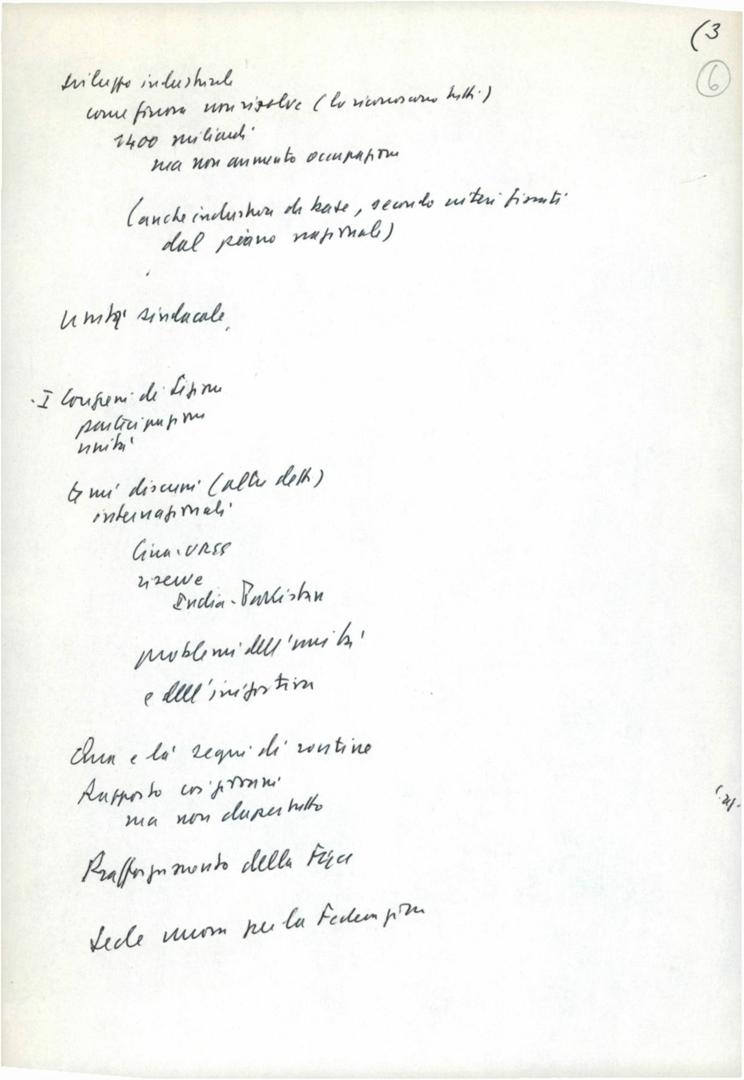 (3
6
sviluppo industriale
come finora non risolve (lo riconoscono tutti)
2400 miliardi
ma non aumento occupazione
(anche industria di base, secondo criteri fissati
dal piano nazionale)
Unità sindacale
I Congressi di Sezione
partecipazione
unità
temi discussi (altri detti)
internazionali
Cina-URSS
riserve
India-Pakistan
problemi dell'unità
e dell'iniziativa
Qua e là segni di routine
Rapporto coi giovani
ma non dapertutto
Rafforzamento della Fgci
Sede nuova per la Federazione